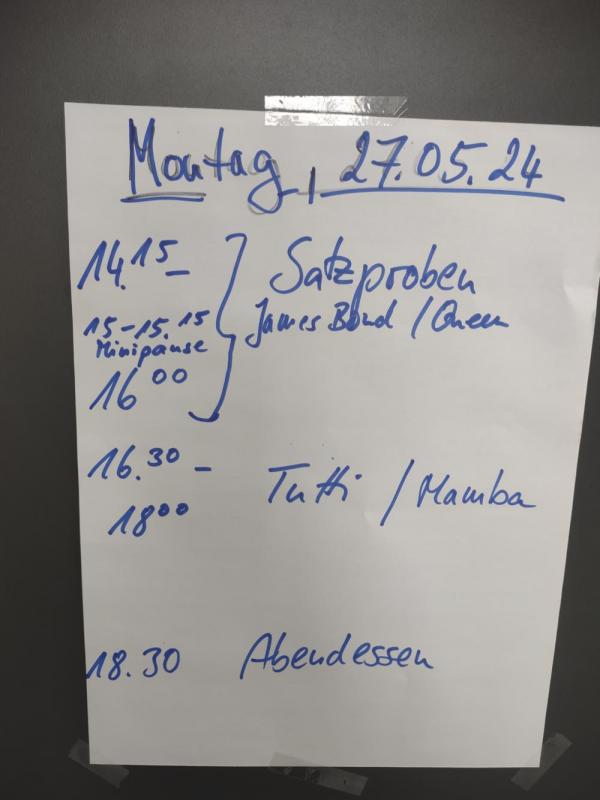 Montag, 27.05.24
14.15 - Satzproben
15-15.15 James Bond / Queen
Minipause
16 00
16.30 - Tutti / Mamba
18 00
18.30 Abendessen